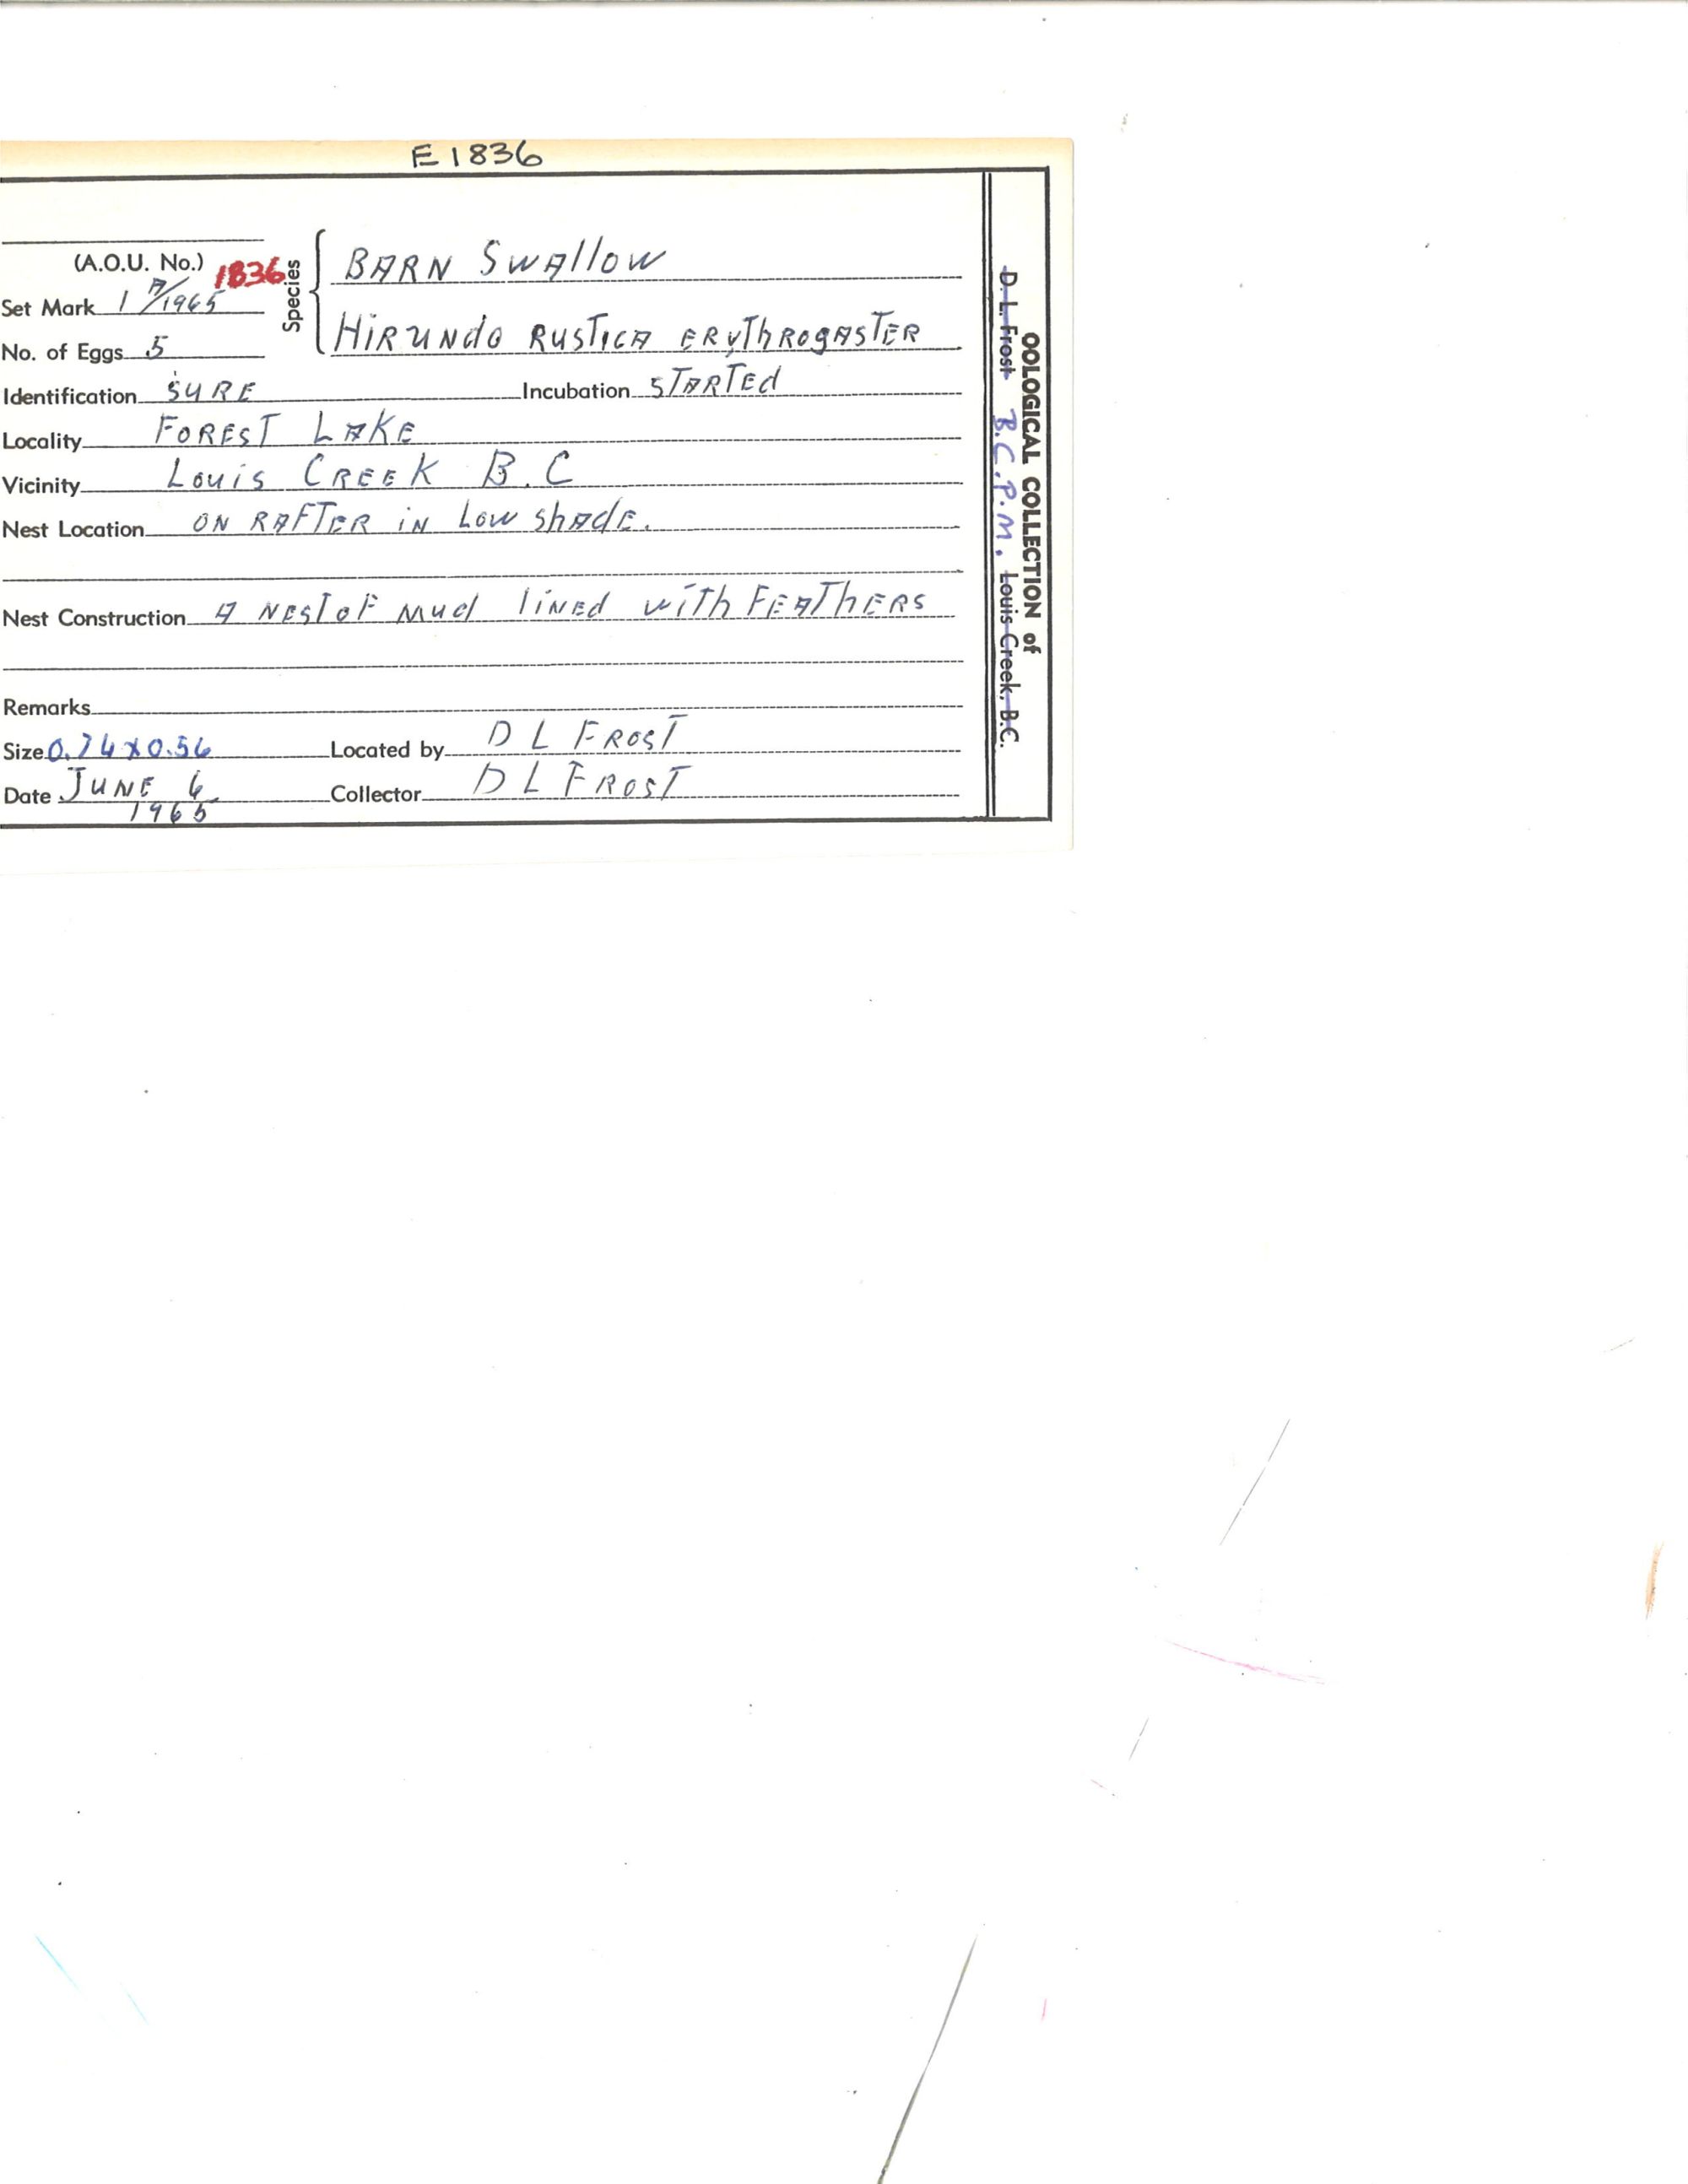 E 1836
(A.O.U. No.) 1836
Set Mark 1 A/1965
No. of Eggs 5
Species
BARN SWAllOW
HiRUNdO RUSTICA ERyThROgASTER
Identification SURE Incubation STARTEd
Locality FOREST LAKE
Vicinity Louis CREEK B.C
Nest Location ON RAFTER iN Low ShAdE.
Nest Construction A NEST OF Mud liNEd wiTh FEAThERS
Remarks
Size 0.74 X 0.56 Located by D L FROST
Date JUNE 6 Collector D L FROST
1965
OOLOGICAL COLLECTION of
D. L. Frost B.C.P.M. Louis Creek, B.C.